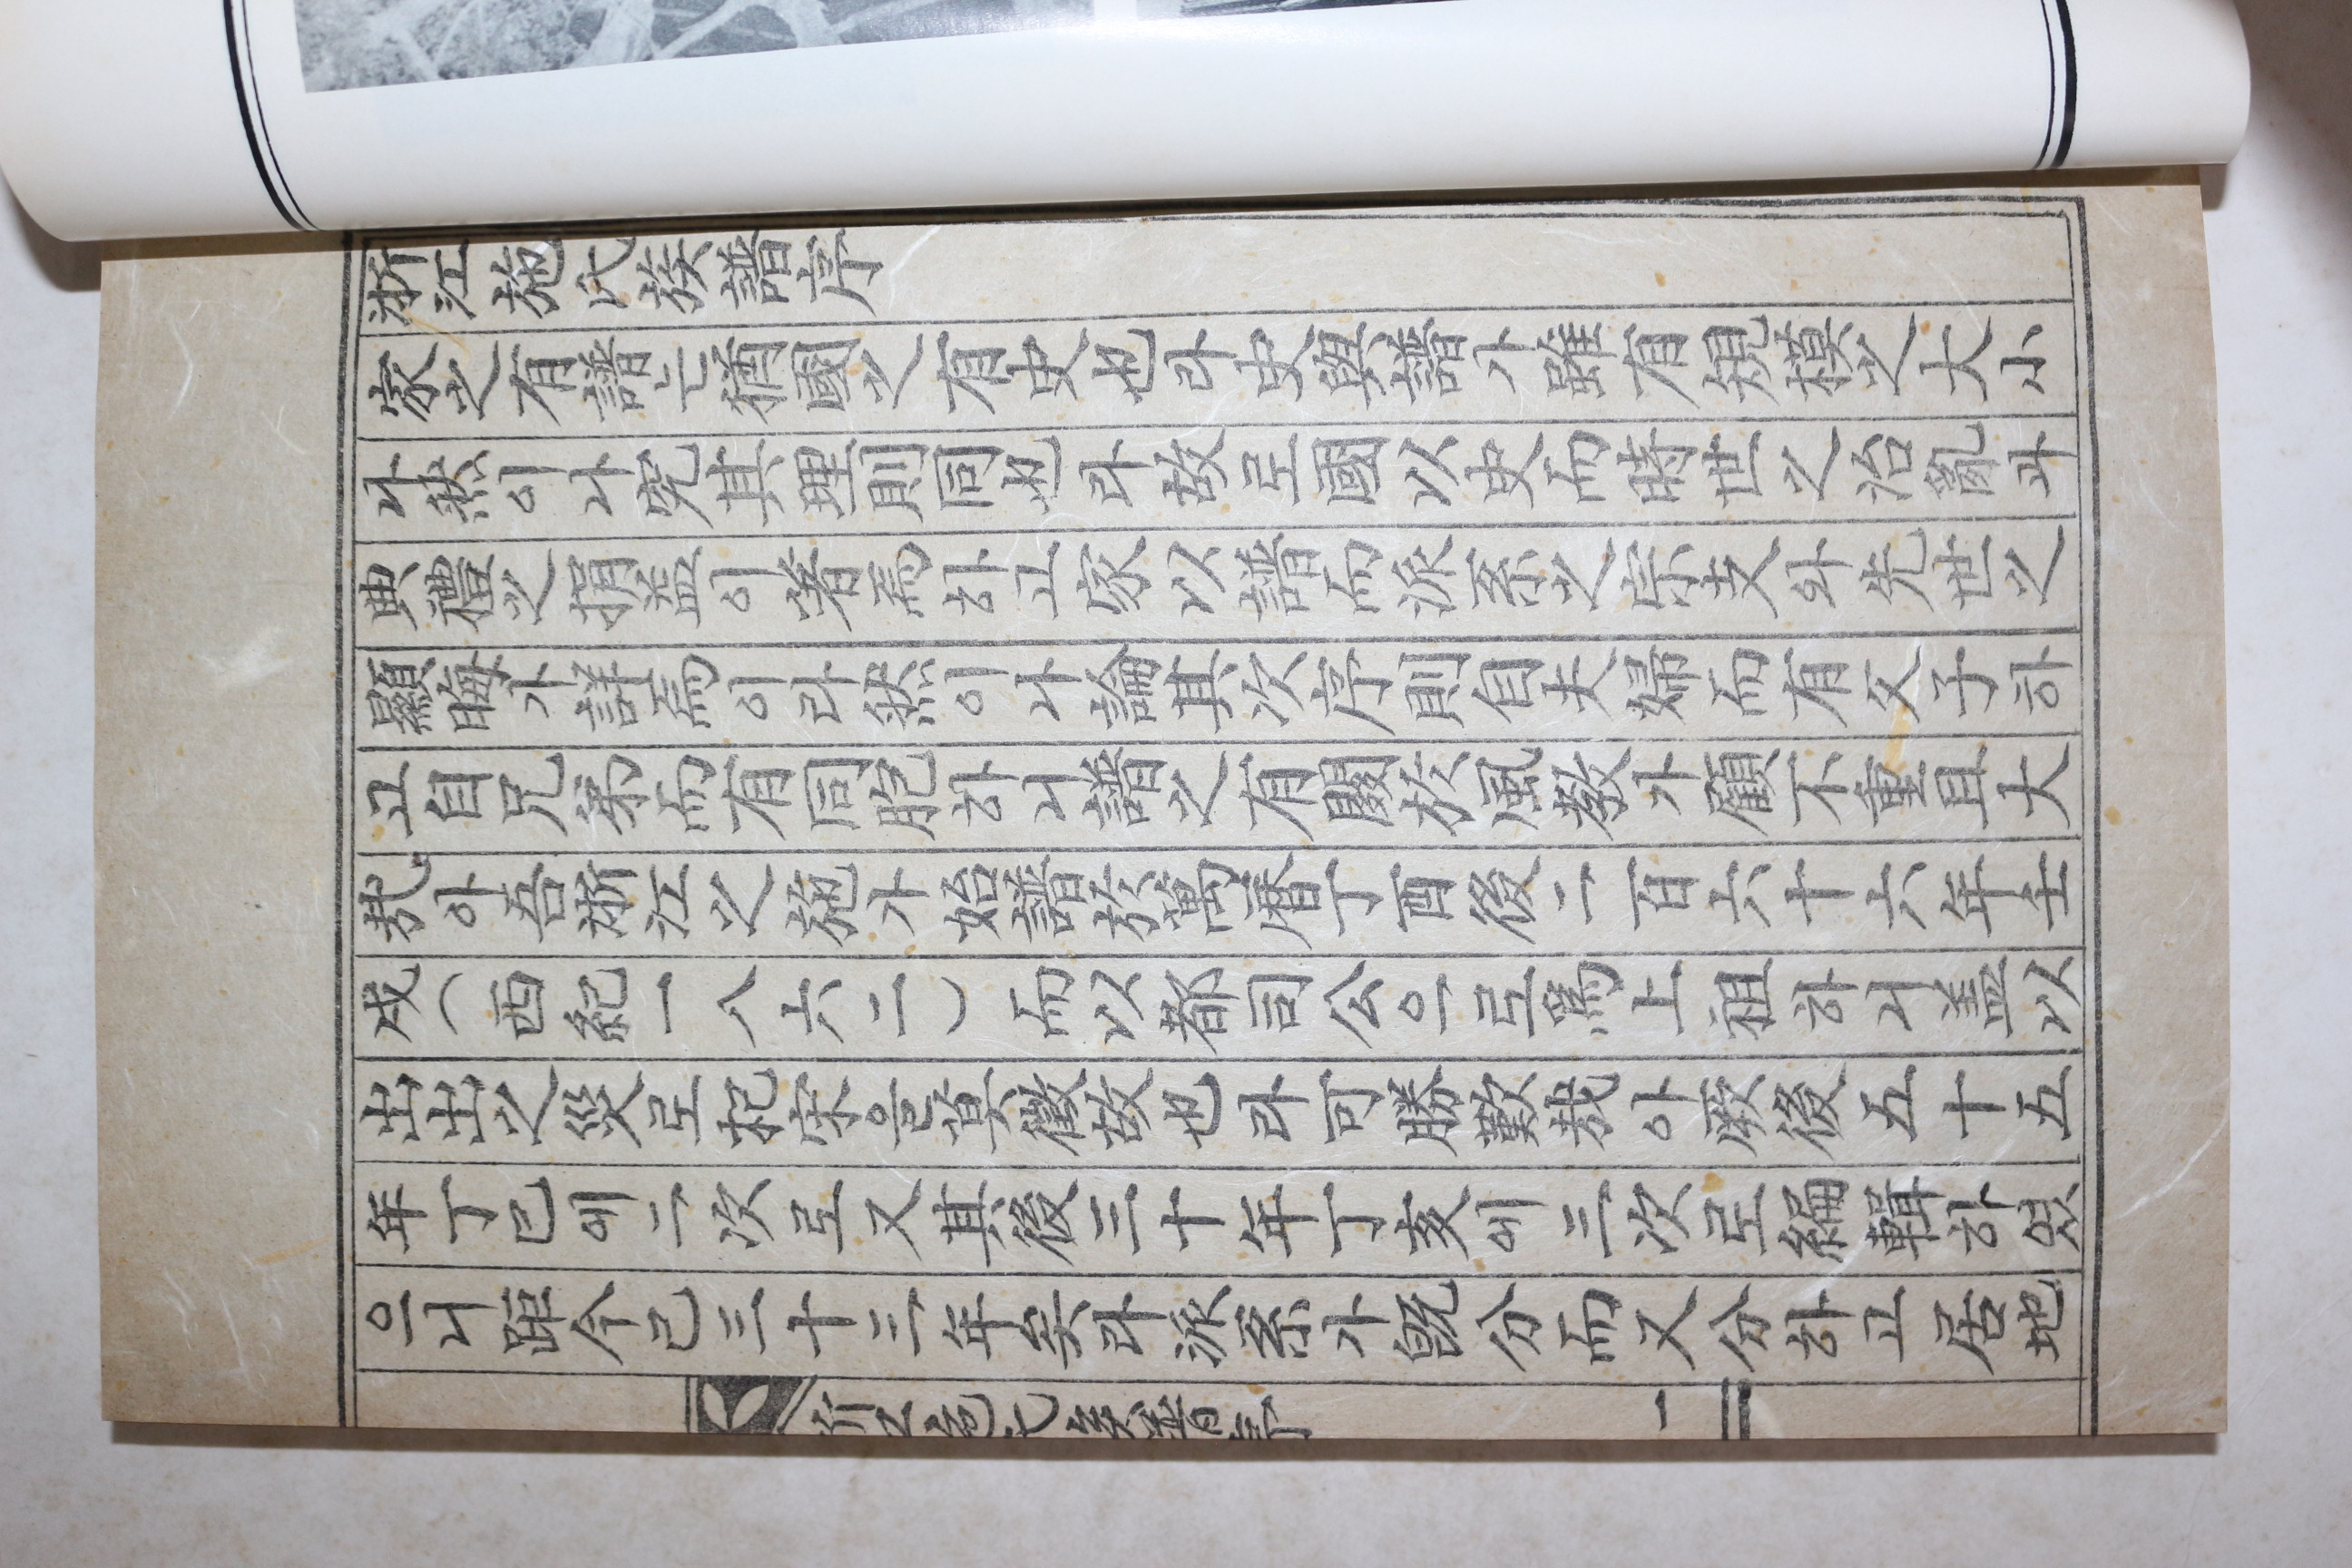 浙江施氏族譜序
家之有譜는猶國之有史也라史與譜가雖有規模之大小
나然이나究其理則同也라故로國以史而時世之治亂과
典禮之損益이著焉하고家以譜而派系之宗支와先世之
顯晦가詳焉이라然이나論其次序則自夫婦而有父子하
고自兄弟而有同胞하니譜之有關於風敎가顧不重且大
哉아吾浙江之施가始譜於萬曆丁酉後二百六十六年壬
戌(西紀一八六二)而以都司公으로爲上祖하니盖以
出出之災로杞宋은莫徵故也라可勝歎哉아厥後五十五
年丁巳에二次로又其後三十年丁亥에三次로編輯하였
으니距今已三十三年矣라派系가旣分而又分하고居地
浙江施氏族譜序 一